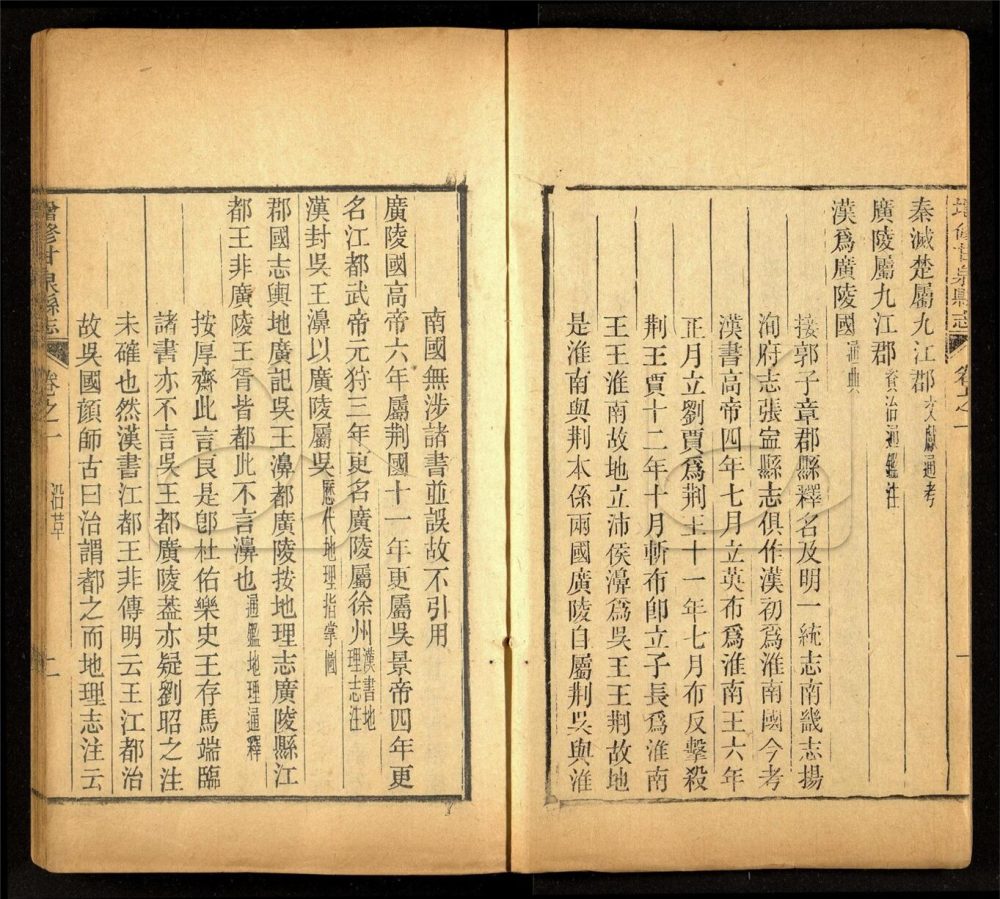 增修甘泉縣志 卷之一
秦滅楚屬九江郡文獻通考
廣陵屬九江郡資治通鑑注
漢爲廣陵國通典
按郭子章郡縣釋名及明一統志南畿志揚
洵府志張寍縣志俱作漢初爲淮南國今考
漢書高帝四年七月立英布爲淮南王六年
正月立劉賈爲荆王十一年七月布反擊殺
荆王賈十二年十月斬布卽立子長爲淮南
王王淮南故地立沛侯濞爲吳王王荆故地
是淮南與荆本係兩國廣陵自屬荆吳與淮
南國無涉諸書並誤故不引用
廣陵國高帝六年屬荆國十一年更屬吳景帝四年更
名江都武帝元狩三年更名廣陵屬徐州漢書地理志注
漢封吳王濞以廣陵屬吳歷代地理指掌圖
郡國志輿地廣記吳王濞都廣陵按地理志廣陵縣江
都王非廣陵王胥皆都此不言濞也通鑑地理通釋
按厚齋此言良是卽杜佑樂史王存馬端臨
諸書亦不言吳王都廣陵葢亦疑劉昭之注
未確也然漢書江都王非傳明云王江都治
故吳國顔師古曰治謂都之而地理志注云
增修甘泉縣志 卷之一 沿革